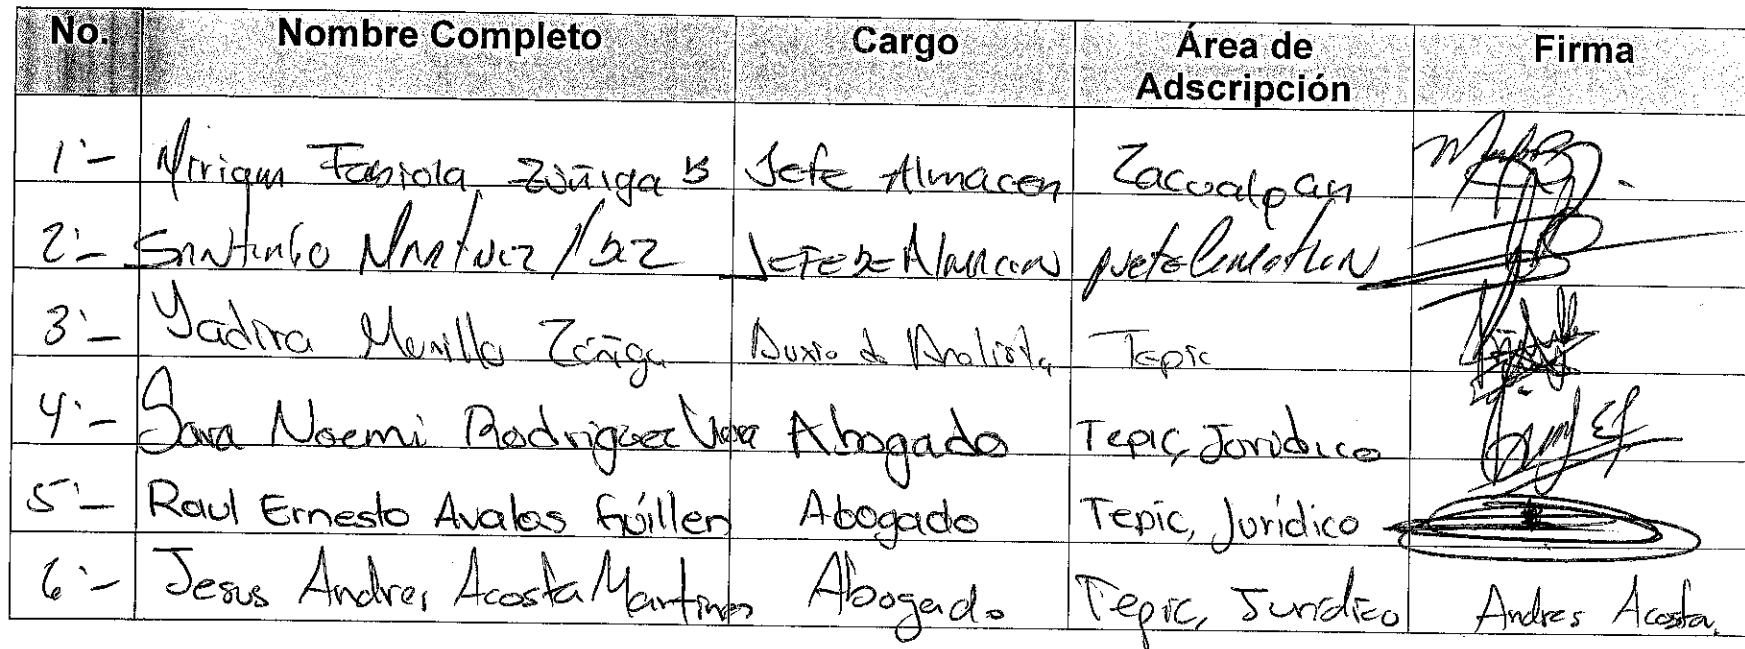 No. Nombre Completo Cargo Área de Adscripción Firma
1.- Miriam Fabiola Zúñiga B Jefe Almacen Zacualpan
2.- Martinez Jefe de Almacen
3.- Yadira Murillo Zúñiga Tepic
4.- Sara Noemi Rodriguez Vera Abogado Tepic, Juridico
5.- Raul Ernesto Avalos Guillen Abogado Tepic, Jurídico
6.- Jesus Andres Acosta Martinez Abogado Tepic, Juridico Andres Acosta.